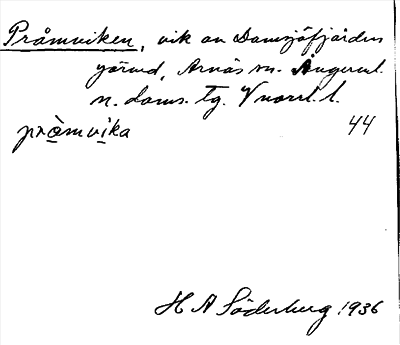 Pråmviken, vik av Damsjöfjärden
Arnäs sn. Ångerml.
n. doms. Tg. V norrl. l.
pràmvika 44
H A Söderberg 1936